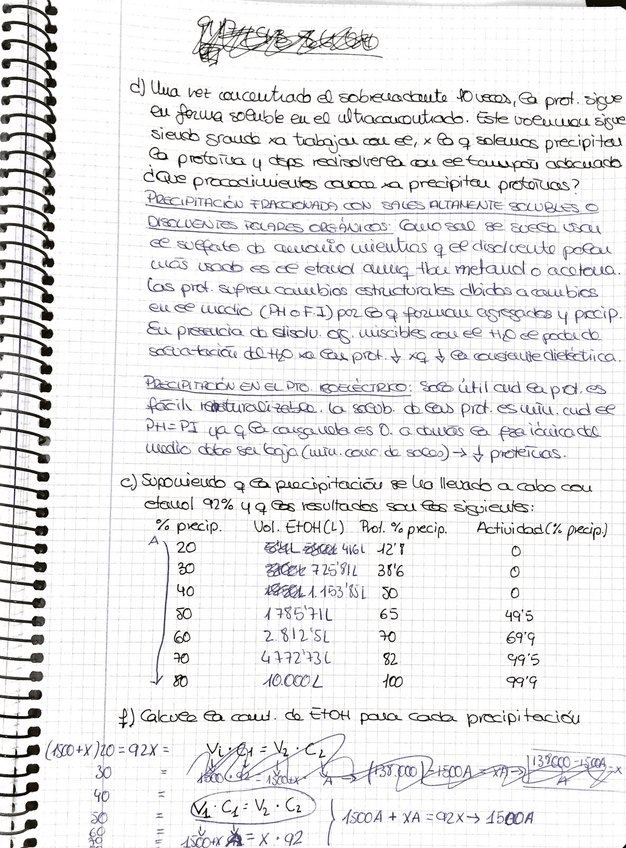 d) Una vez concentrado el sobrenadante 10 veces, la prot. sigue
en forma soluble en el ultraconcentrado. Este volumen sigue
siendo grande xa trabajar con él, x lo q solemos precipitar
la proteína y dsps redisolverla con el tampón adecuado
¿Que procedimientos conoce xa precipitar proteínas?
PRECIPITACIÓN FRACCIONADA CON SALES ALTAMENTE SOLUBLES O
DISOLVENTES POLARES ORGÁNICOS: Como sal se suele usar
el sulfato d amonio mientras q el disolvente polar
más usado es el etanol aunq tbn metanol o acetona.
Las prot. sufren cambios estructurales dbidos a cambios
en el medio (PH o F.I) por lo q forman agregados y precip.
En presencia de disolv. og. miscibles con el H2O el poder de
solvatación del H2O xa las prot. ↓ xq ↓ la constante dieléctrica.
PRECIPITACIÓN EN EL PTO. ISOELÉCTRICO: Solo útil cnd la prot. es
fácil. La solub. d las prot. es mín. cnd el
PH = PI ya q la carga neta es 0. además la fza iónica del
medio debe ser baja (mín. conc. de sales) → ↓ proteínas.
e) Suponiendo q la precipitación se ha llevado a cabo con
etanol 92% y q los resultados son los siguientes:
% precip. Vol. EtOH (L) Prot. % precip. Actividad (% precip.)
A 20 416L 12'8 0
30 725'81L 38'6 0
40 1.153'85L 50 0
50 1785'71L 65 49'5
60 2.812'5L 70 69'9
70 4772'73L 82 99'5
80 10.000L 100 99'9
f) Calcule la cant. de EtOH para cada precipitación
(1500+X)20 = 92X = V1·C1 = V2·C2
30 = 1500·92 = 1500+x · A → (138.000)-1500A = xA → 138000-1500A / A = x
40 =
50 = V1·C1 = V2·C2 1500A + xA = 92X → 1500A
60 =
70 = 1500+x A = x·92